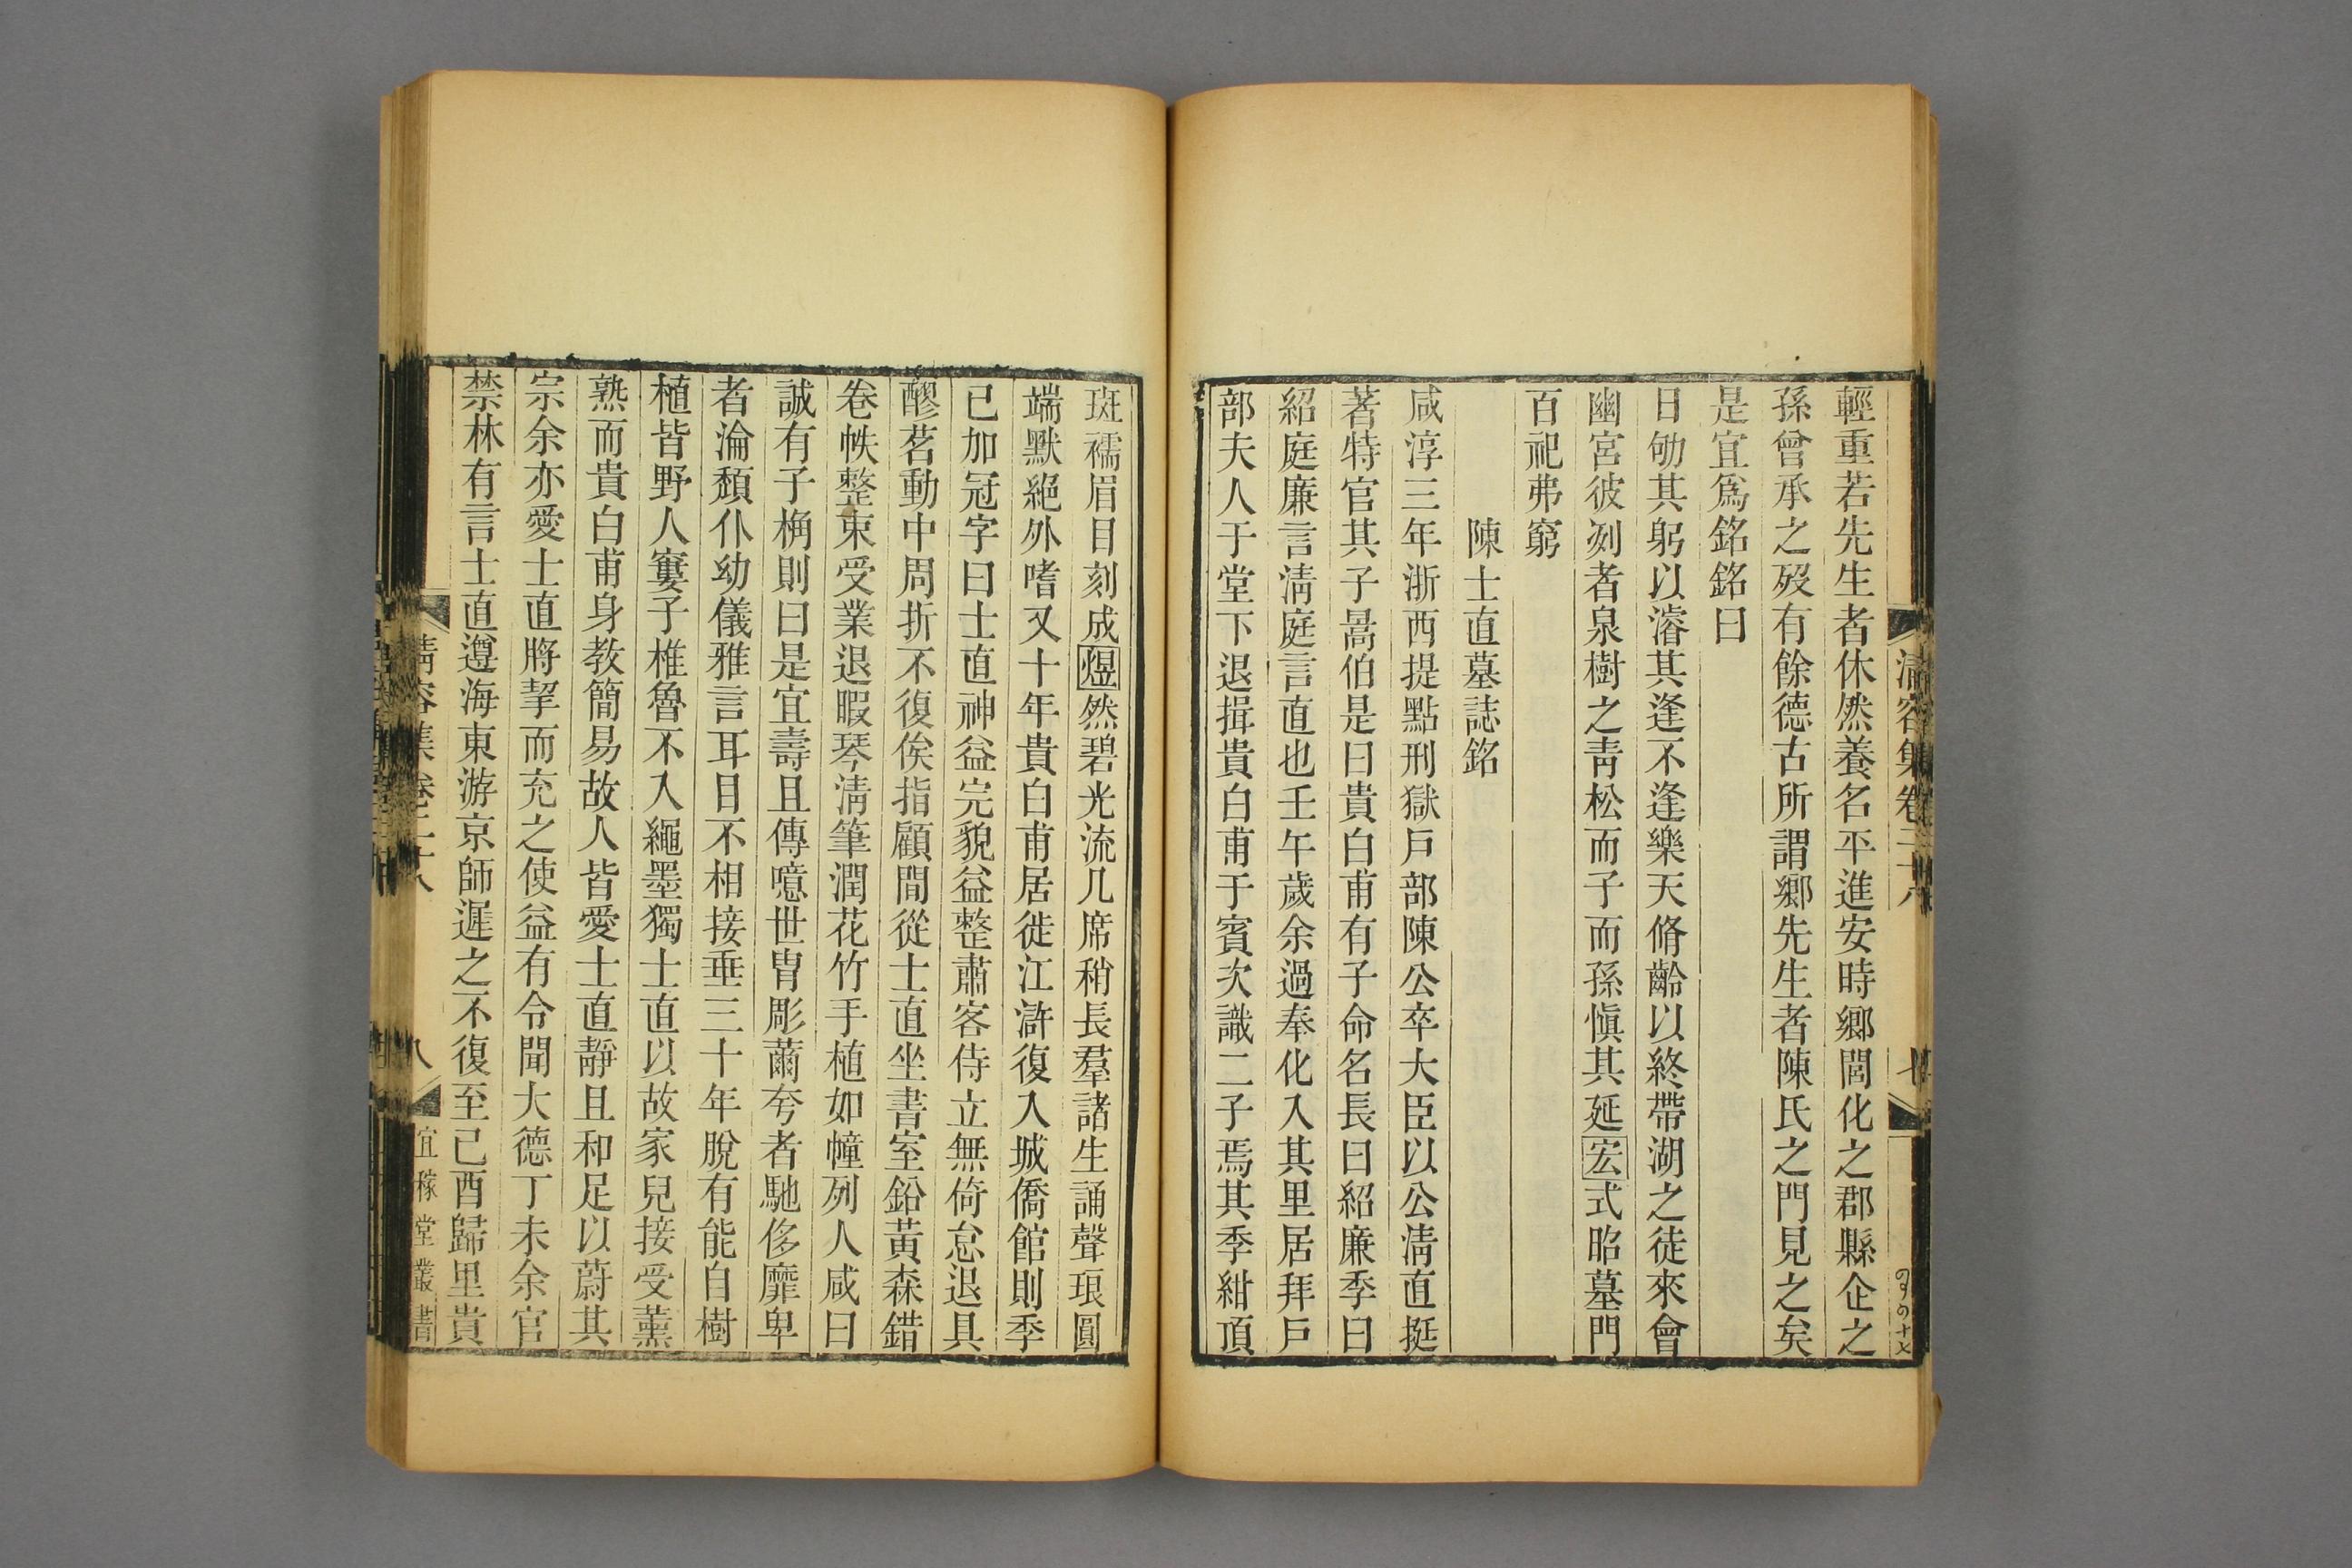 清容集卷二十八
七
輕重若先生者休然養名平進安時鄉閭化之郡縣企之
孫曾承之歿有餘德古所謂鄉先生者陳氏之門見之矣
是宜爲銘銘曰
日劬其躬以濬其逢不逢樂天脩齡以終帶湖之徒來會
幽宮彼刻者泉樹之靑松而子而孫愼其延宏式昭墓門
百祀弗窮
陳士直墓誌銘
咸淳三年浙西提點刑獄戶部陳公卒大臣以公淸直挺
著特官其子暠伯是曰貴白甫有子命名長曰紹廉季曰
紹庭廉言淸庭言直也壬午歲余過奉化入其里居拜戶
部夫人于堂下退揖貴白甫于賓次識二子焉其季紺頂
斑襦眉目刻成煜然碧光流几席稍長羣諸生誦聲琅圓
端默絕外嗜又十年貴白甫居徙江滸復入城僑館則季
已加冠字曰士直神益完貌益整肅客侍立無倚怠退具
醪茗動中周折不復俟指顧間從士直坐書室鉛黃森錯
卷帙整束受業退暇琴淸筆潤花竹手植如幢列人咸曰
誠有子桷則曰是宜壽且傳噫世胄彫薾夸者馳侈靡卑
者淪頽仆幼儀雅言耳目不相接垂三十年脫有能自樹
植皆野人窶子椎魯不入繩墨獨士直以故家兒接受薰
熟而貴白甫身教簡易故人皆愛士直靜且和足以蔚其
宗余亦愛士直將挈而充之使益有令聞大德丁未余官
禁林有言士直遵海東游京師遲之不復至己酉歸里貴
清容集卷二十八
八
宜稼堂叢書